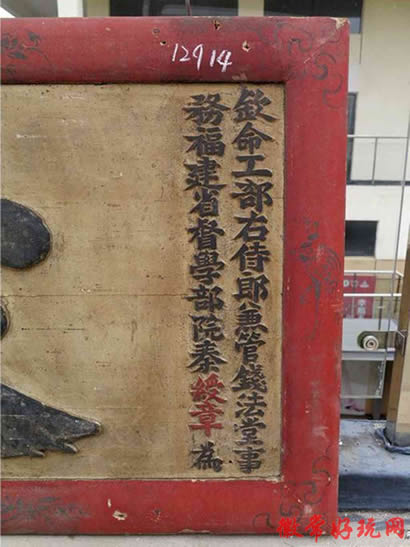 12914
欽命工部右侍郎兼管錢法堂事
務福建省督學部院秦綬章為
徽常好玩网